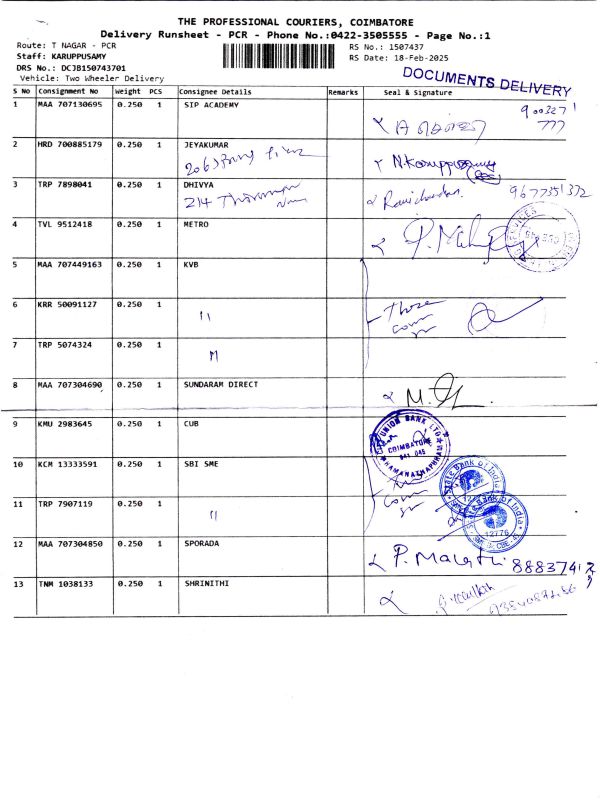 THE PROFESSIONAL COURIERS, COIMBATORE
Delivery Runsheet - PCR - Phone No.:0422-3505555 - Page No.:1
Route: T NAGAR - PCR
RS No.: 1507437
Staff: KARUPPUSAMY
RS Date: 18-Feb-2025
DRS No.: DCJB150743701
Vehicle: Two Wheeler Delivery
DOCUMENTS DELIVERY
S No Consignment No Weight PCS Consignee Details Remarks Seal & Signature
1 MAA 707130695 0.250 1 SIP ACADEMY
2 HRD 700885179 0.250 1 JEYAKUMAR N.Karuppusamy
3 TRP 7898041 0.250 1 DHIVYA Ravichandran 9677351372
214
4 TVL 9512418 0.250 1 METRO
5 MAA 707449163 0.250 1 KVB
6 KRR 50091127 0.250 1 Those
7 TRP 5074324 0.250 1
8 MAA 707304690 0.250 1 SUNDARAM DIRECT
9 KMU 2983645 0.250 1 CUB
UNION BANK LTD
COIMBATORE
641 045
RAMANATHAPURAM
10 KCM 13333591 0.250 1 SBI SME
State Bank of India
11 TRP 7907119 0.250 1
State Bank of India
12776
12 MAA 707304850 0.250 1 SPORADA P. Malathi
13 TNM 1038133 0.250 1 SHRINITHI